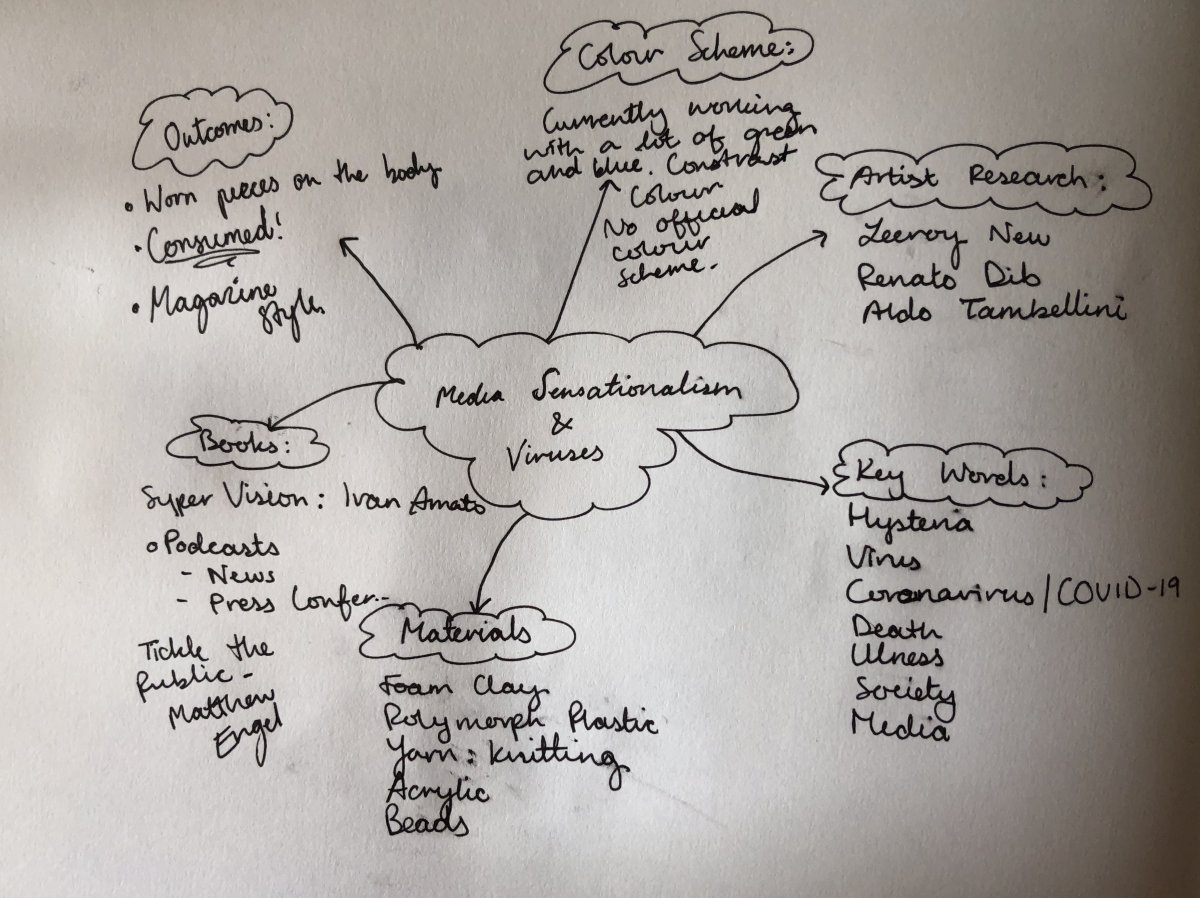 Media Sensationalism
&
Viruses
Outcomes:
• Worn pieces on the body
• Consumed!
• Magazine
style
Colour Scheme:
Currently working
with a lot of green
and blue. Constrast
Colour
No official
colour
scheme.
Artist Research:
Leeroy New
Renato Dib
Aldo Tambellini
Key Words:
Hysteria
Virus
Coronavirus/COVID-19
Death
Illness
Society
Media
Materials
Foam Clay
Polymorph Plastic
Yarn: knitting
Acrylic
Beads
Books:
Super Vision: Ivan Amato
o Podcasts
- News
- Press Confer..
Tickle the
Public -
Matthew
Engel